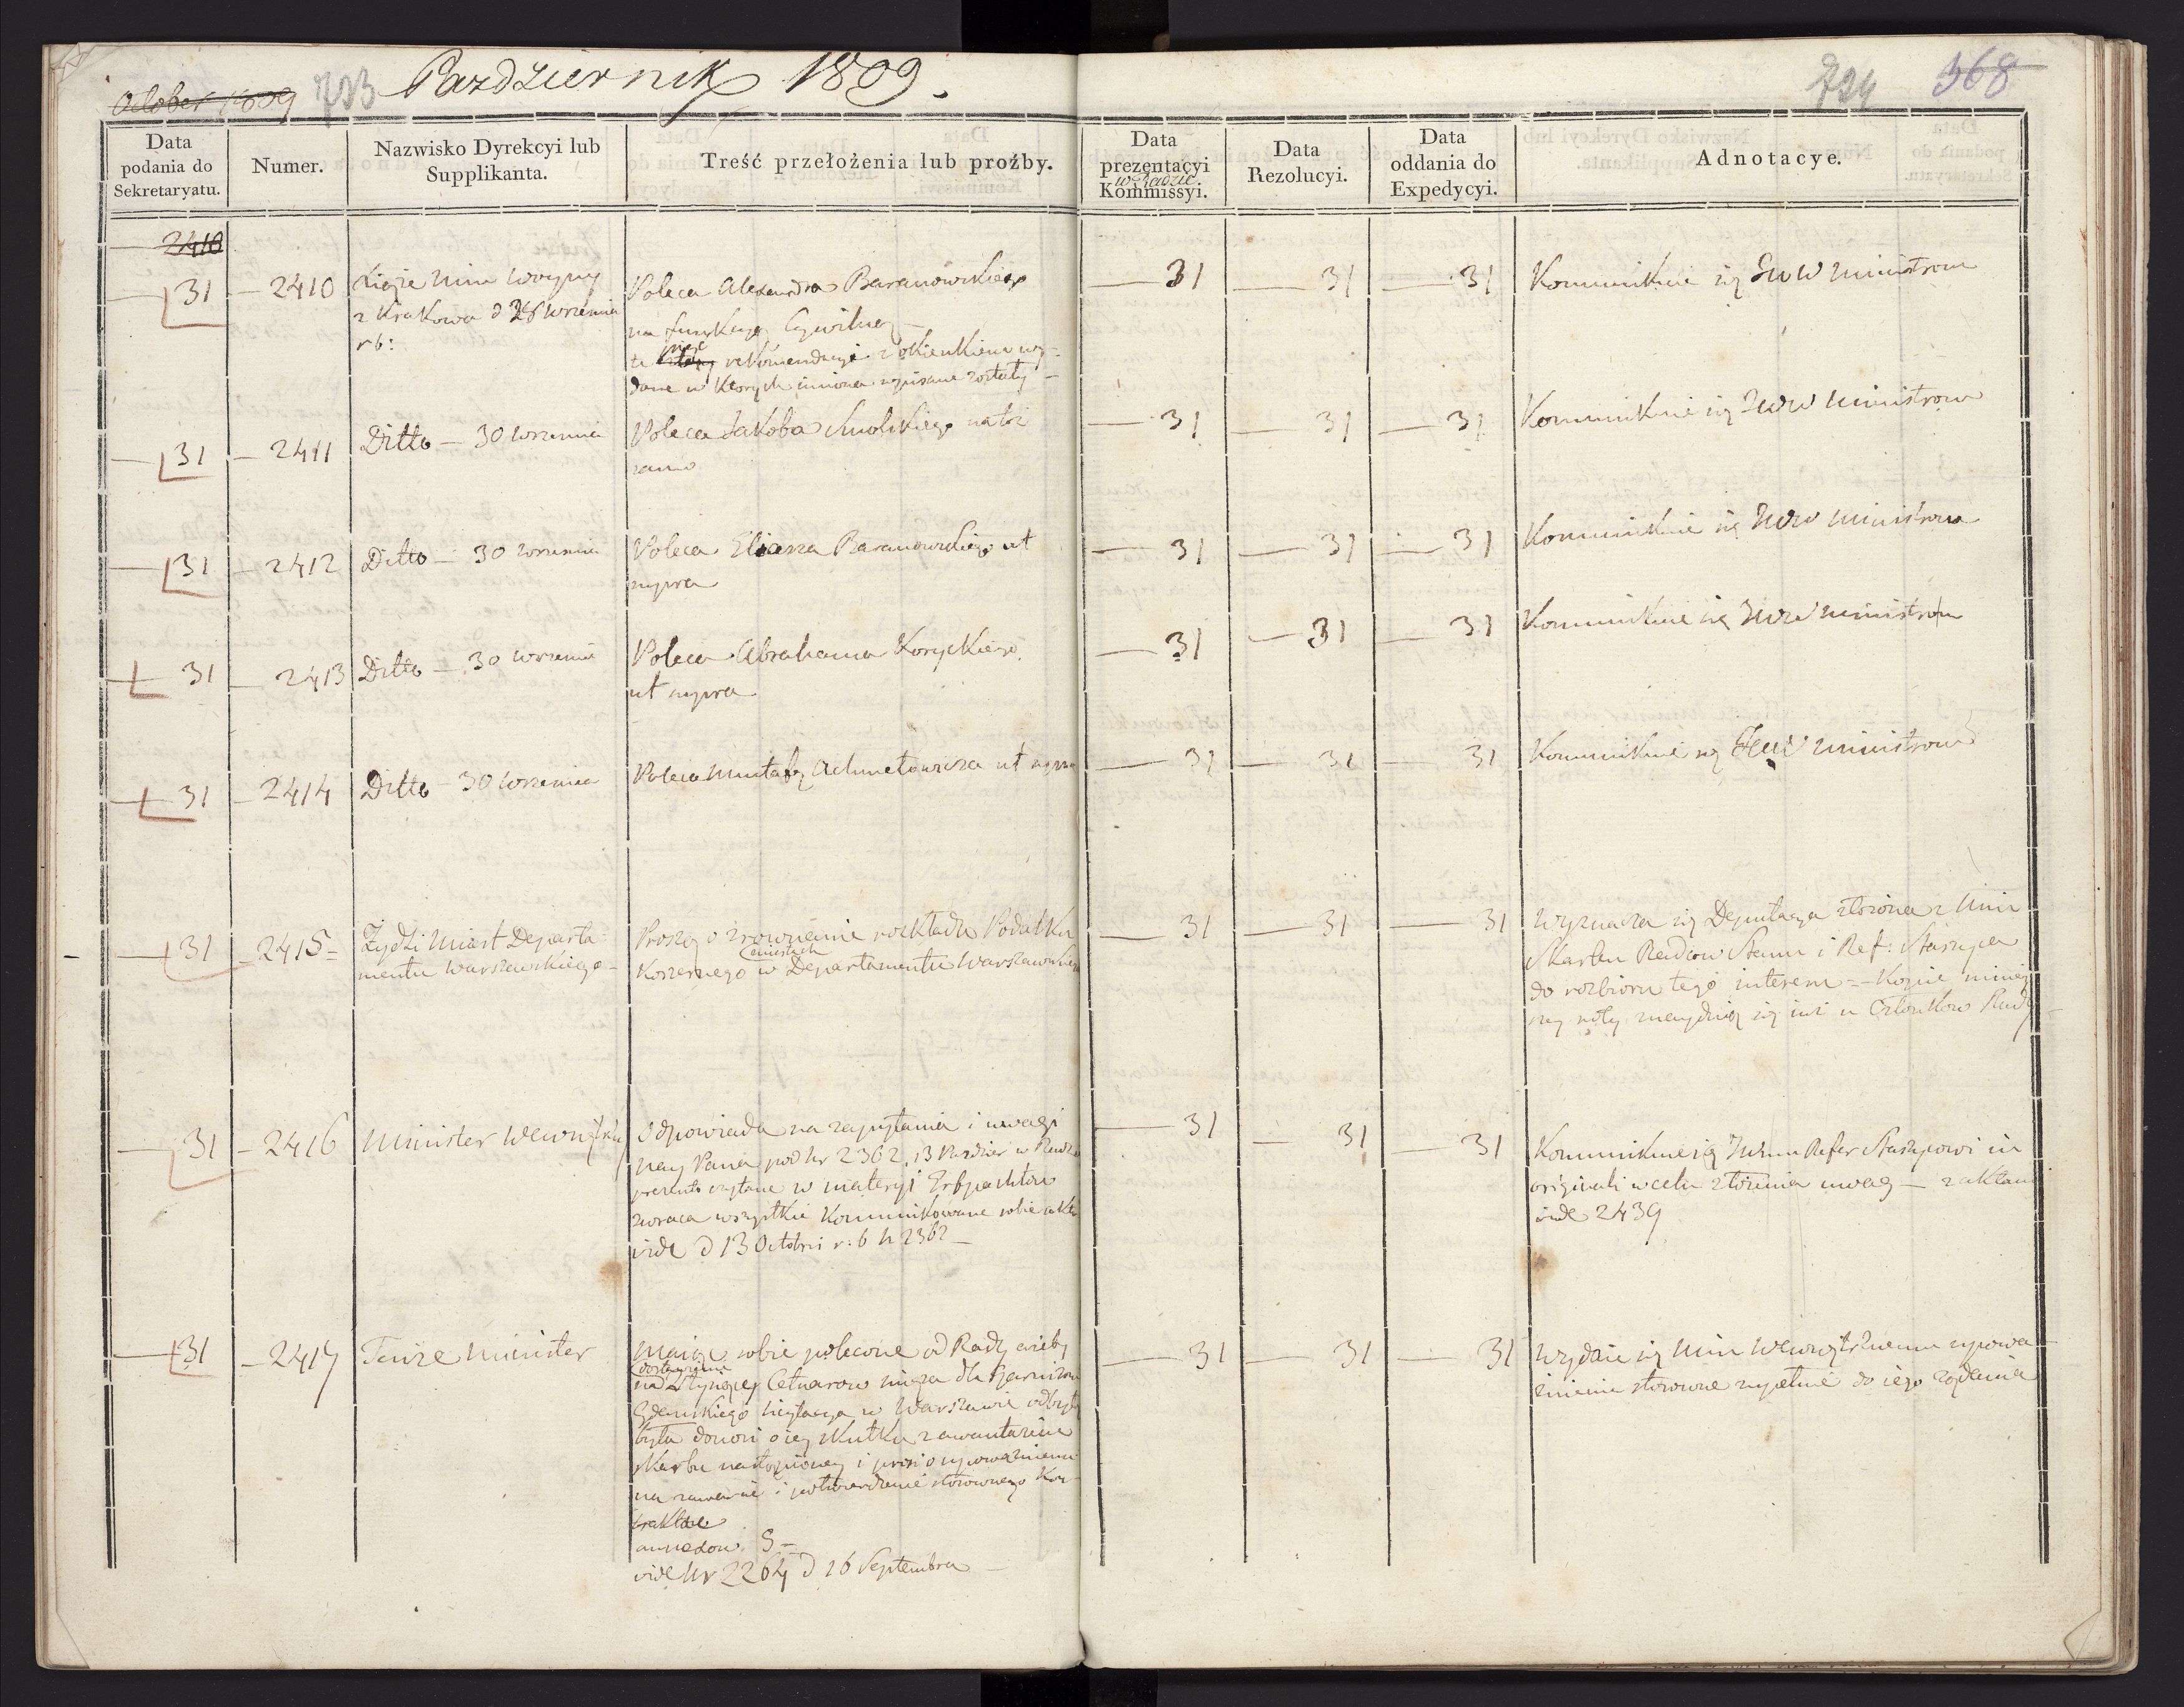 October 1809 723 Pazdziernik 1809.
724 368
Data podania do Sekretaryatu.
Numer.
Nazwisko Dyrekcyi lub Supplikanta.
Treść przełożenia lub proźby.
Data prezentacyi w Radzie Kommissyi.
Data Rezolucyi.
Data oddania do Expedycyi.
Adnotacye.
2410
31 2410 Xiąże Min Woyny
z Krakowa d 28 Wrzesnia
rb:
Poleca Alexandra Baranowskiego
na funkcyą Cywilną
te rekomendacyie z okienkiem wy-
dane w ktorych imiona wpisane zostały
31 31 31 Kommunikuie się Ministrom
31 2411 Ditto 30 Wrzesnia
Poleca Jakoba Smolskiego na toż
samo
31 31 31 Kommunikuie się Ministrom
31 2412 Ditto 30 Wrzesnia
Poleca Eliasza Baranowskiego ut
supra
31 31 31 Kommunikuie się Ministrom
31 2413 Ditto 30 Wrzesnia
Poleca Abrahama Koryckiego
ut supra
31 31 31 Kommunikuie się Ministrom
31 2414 Ditto 30 Wrzesnia
Poleca Mustafę Achmetowicza ut supra
31 31 31 Kommunikuie się Ministrom
31 2415 Żydzi Miast Departa-
mentu Warszawskiego
Proszą o zrownanie rozkładu Podatku
Koszernego w miastach Departamentu Warszawskiego
31 31 31 Wyznacza się Deputacya złożona z Min
Skarbu Radcow Stanu i Ref: Staszyca
do rozbioru tego interesu = Kopie niniey
szey noty znaydują się iuż u Członkow Rady
31 2416 Minister Wewnętrzny
Odpowiada na zapytania i uwagi
nay Pana pod Nr 2362, 13 Pazdzier w Radzie
czytane w materyi Erbpachtow
zwraca wszystkie Kommunikowane sobie akta
vide d 13 Octobris r: b N 2362
31 31 31 Kommunikuie się Refer Staszycowi in
originali w celu złożenia uwag
vide 2439
31 2417 Tenże Minister
Maiąc sobie polecone od Rady ażeby
na dostawienie Cetnarow mięsa dla Garnizonu
Gdanskiego licytacya w Warszawie odbyta
była donosi o iey skutku z awantażem
Skarbu nastąpioney i prosi o upoważnienie
na zawarcie i potwierdzenie stosownego Kon-
traktu
annexow 5
vide Nr 2264 d 16 Septembra
31 31 31 Wydaie się Min Wewnętrznemu upowa-
żnienie stosowne zupełnie do iego żądania